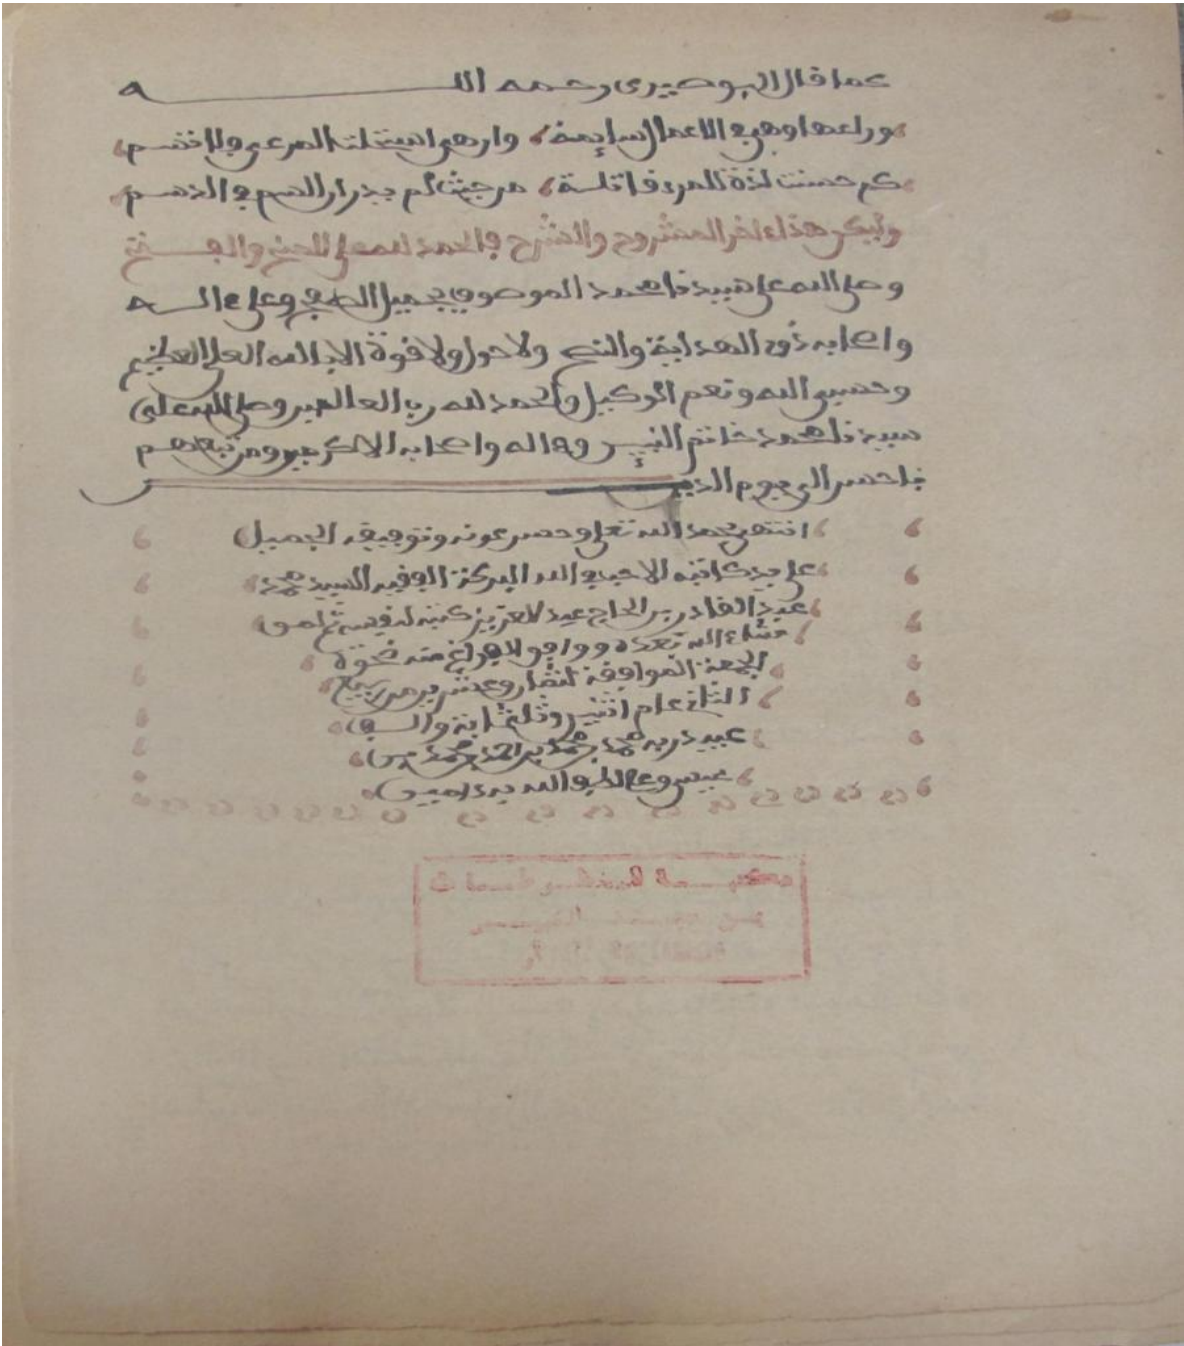 كما قال البوصيري رحمه الله
وراعها وهي في الاعمال سايمة وان هي استحلت المرعى فلا تسم
كم حسنت لذة للمرء قاتلة من حيث لم يدر ان السم في الدسم
وليكن هذا ءاخر المشروح والشرح والحمد لله على
وصلى الله على سيدنا محمد الموصوف بجميل وعلى ءاله
واصحابه ذوي الهداية ولا حول ولا قوة الا بالله العلي العظيم
وحسبي الله ونعم الوكيل والحمد لله رب العالمين وصلى الله على
سيدنا محمد خاتم النبيين وءاله واصحابه الاكرمين ومن تبعهم
باحسن الى يوم الدين
انتهى بحمد الله تعلى وحسن عونه وتوفيقه الجميل
على يد كاتبه الاحب في الله البركة الفقيه السيد محمد
عبد القادر بن الحاج عبد العزيز كتبه لنفسه ثم لمن
شاء الله بعده ووافق الفراغ منه ضحوة
الجمعة الموافقة لثمان وعشرين من ربيع
الثاني عام اثنين وثلثماية والف
عبيد ربه محمد بن محمد بن احمد بن محمد بن
عيسى الله به ءامين
مكتبة المخطوطات